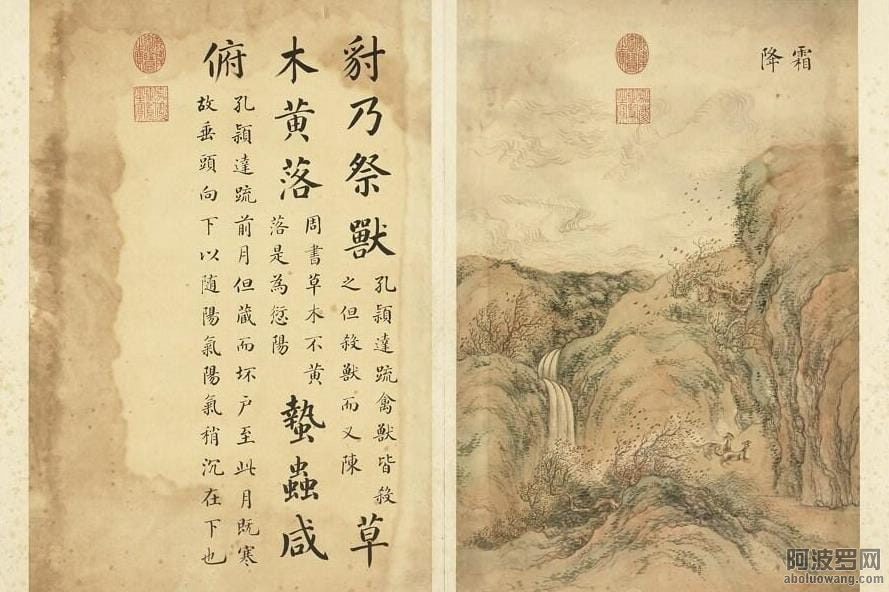 霜降
豺乃祭獸
孔頴達疏禽獸皆殺
之但殺獸而又陳
草
木黄落
周書草木不黄
落是為愆陽
蟄蟲咸
俯
孔頴達疏前月但蔵而坏户至此月既寒
故垂頭向下以随陽氣陽氣稍沉在下也
阿波罗网
aboluowang.com